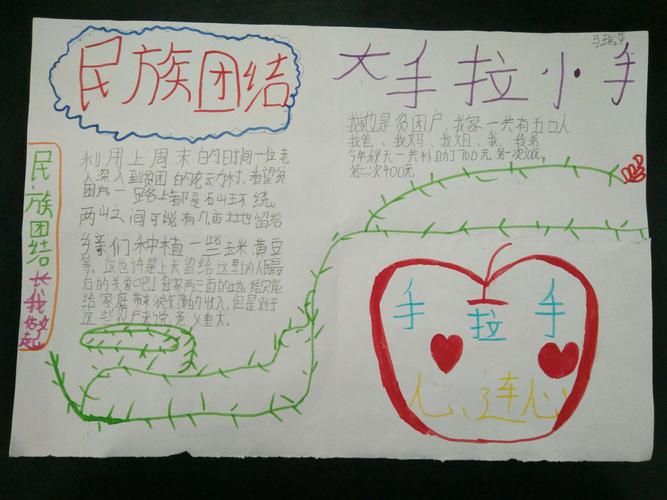 民族团结
大手拉小手
民族团结从我做起
利用上周末的时间一位老
人深入到贫困的
困户一路各上都是石山王不绕
两山之间可能有几亩土地留给
乡亲们种植一些玉米黄豆
等。这也许是上天留给这里的人最
后的关着吧!每家两三亩的地给只能
给家庭带来微薄的收入,但是对于
这些户来说意义重大。
我家也是贫困户,我家一共有五口人
我爸、我妈、我姐、我、我弟
今年秋天一共补助了700元第一次300元
第二次400元
手拉手
心连心